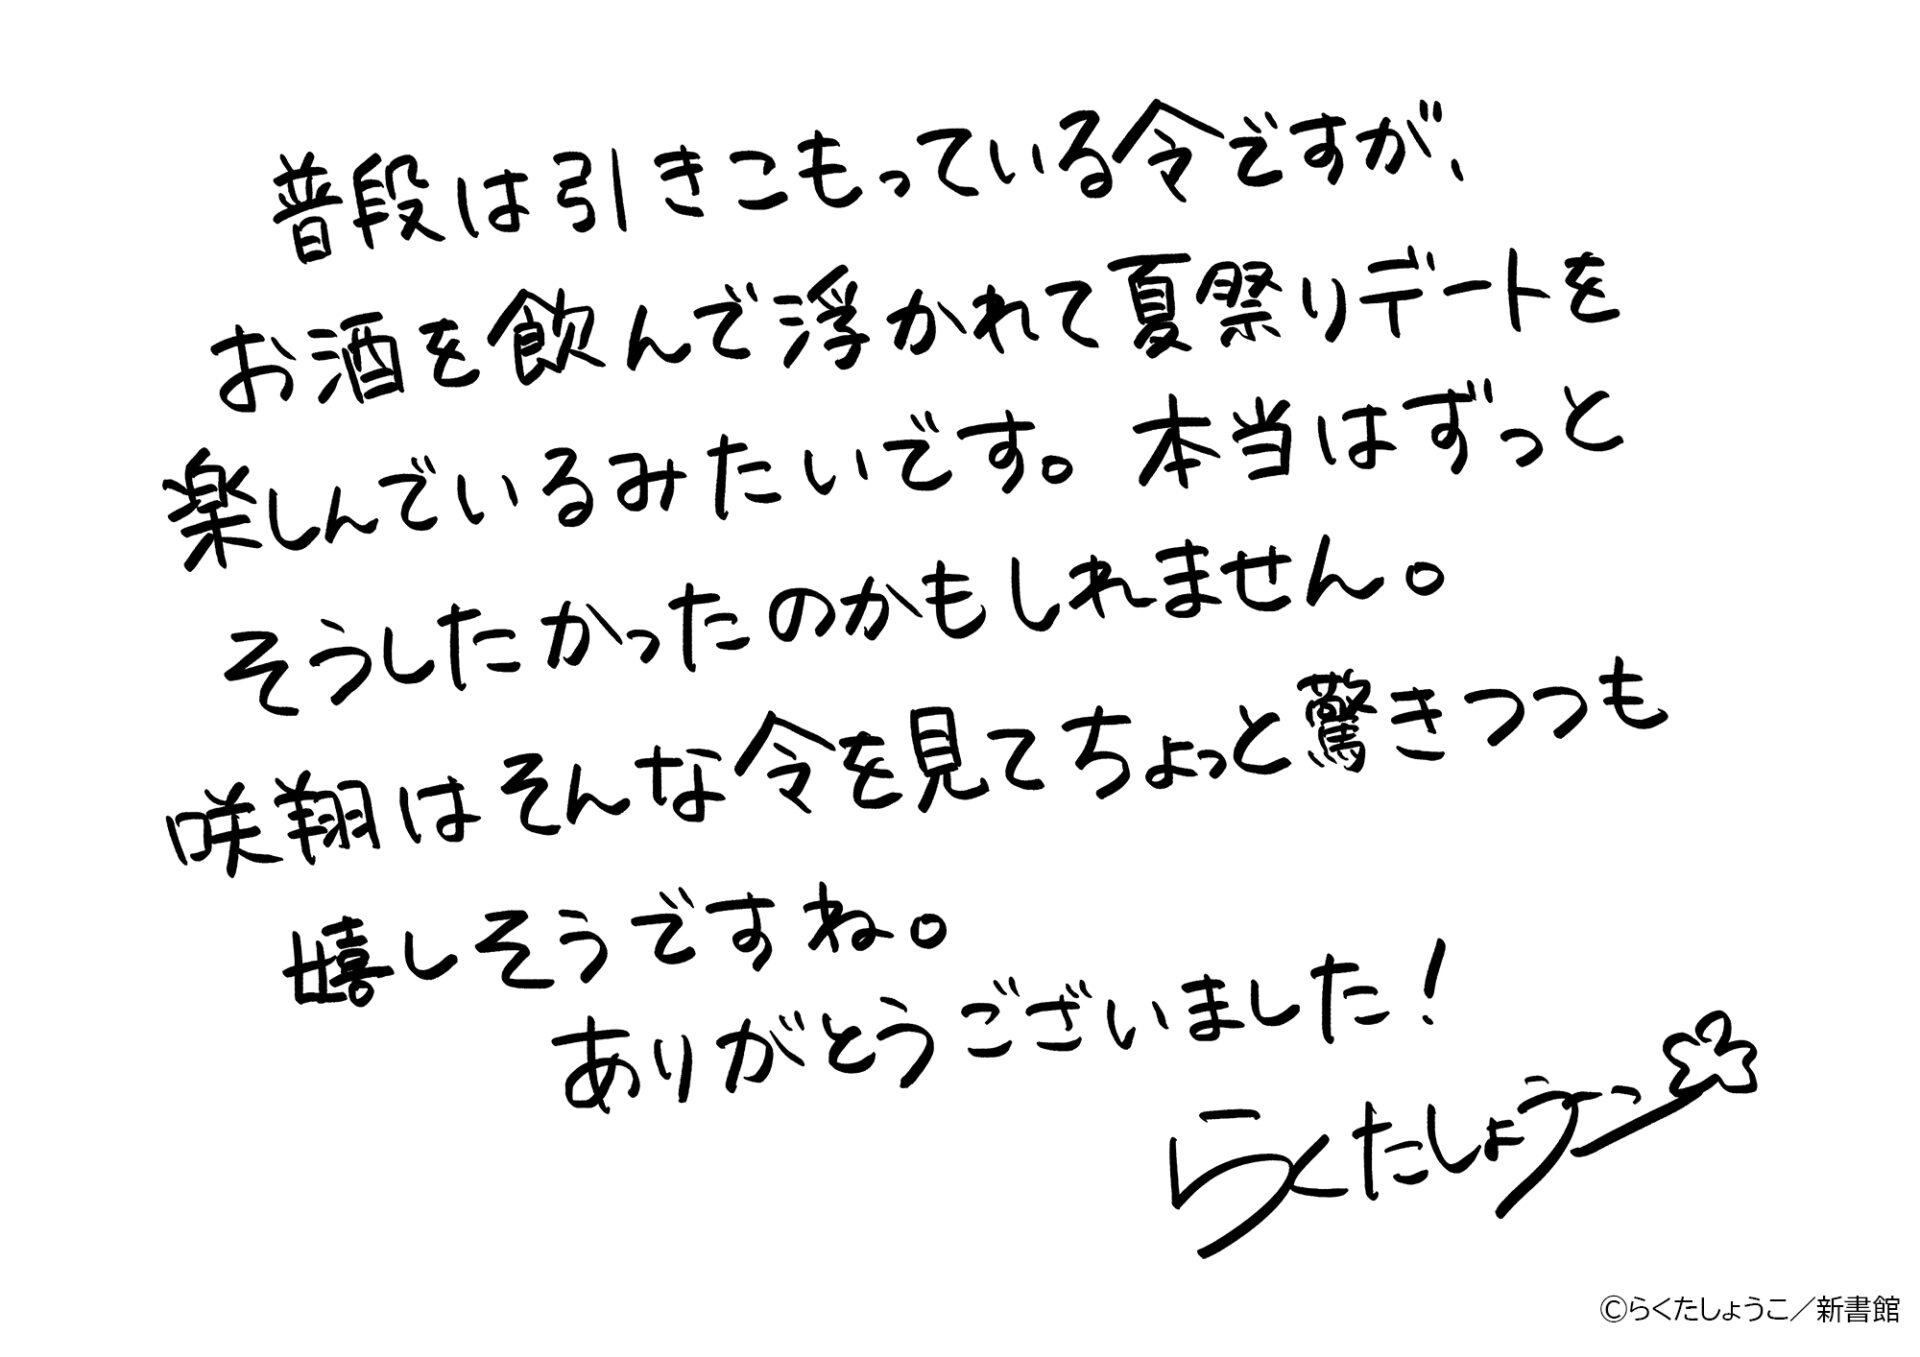 普段は引きこもっている令ですが、
お酒を飲んで浮かれて夏祭りデートを
楽しんでいるみたいです。本当はずっと
そうしたかったのかもしれません。
咲翔はそんな令を見てちょっと驚きつつも
嬉しそうですね。
ありがとうございました！
らくたしょうこ
©らくたしょうこ／新書館